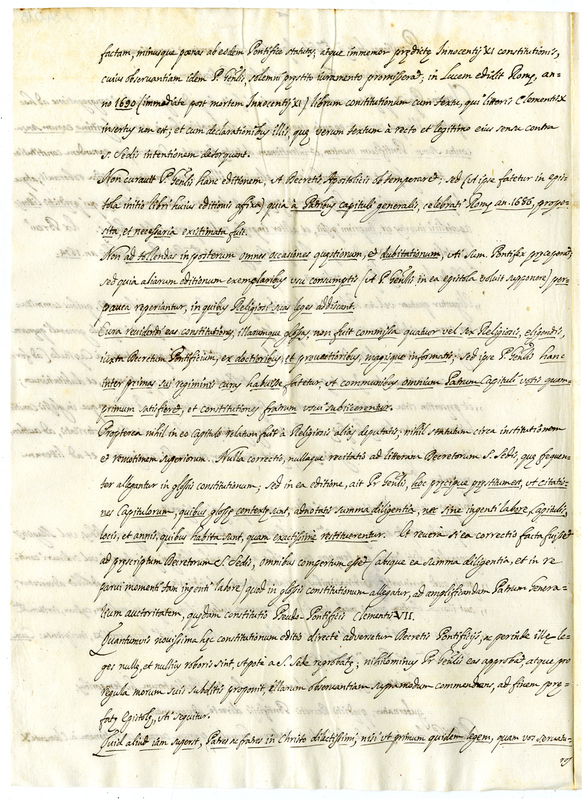 factam, minusque pœnas ab eodem Pontifice statutas, atque immemor prędictę Innocentij XI constitutionis,
cuius observantiam idem P. Gen̄lis, solemni pręstito iuramento promisserat; in Lucem edidit Romę, an-
no 1690 (immediate post mortem Innocentij XI) librum constitutionum cum textu, qui litteris Clementis X
insertus non est; et cum declarationibus illis, quę verum textum à recto et legitimo eius sensu contra
S. Sedis intentionem detorquent.
Non curavit P. Gen̄lis hanc editionem, ut Decretis Apostolicis obtemperaret, sed (ut ipse fatetur in epis-
tola initio libri huius editionis affixa) quia à Patribus capituli generalis, celebrati Romę an. 1686, propo-
sita, et necessaria existimata fuit.
Non ad tollendas in posterum omnes occasiones quęstionum, et dubitationum, uti Sum. Pontifex pręceperat,
sed quia aliarum editionum exemplaribus usu consumptis (ut P. Gen̄lis in ea epistola voluit supponere) per-
pauca reperiantur, in quibus Religiosi suas leges addiscant.
Cura revidendi eas constitutiones, illarumque glossas, non fuit commissa quatuor vel sex Religiosis, eligendis,
iuxta Decretum Pontificium, ex doctioribus, et provectioribus, magisque informatis; sed ipse P. Gen̄lis hanc
inter primas sui regiminis curas habuisse fatetur, ut communibus omnium Patrum Capituli votis quam-
primum satisfieret, et constitutiones fratrum usui subijcerentur.
Propterea nihil in eo capitulo relatum fuit à Religiosis aliàs deputatis; nihil statutum circa institutionem
et remotionem superiorum. Nulla correctio, nullaque recitatio ad litteram Decretorum S. Sedis, quę frequen-
ter allegantur in glossis constitutionum; sed in ea editione, ait P. Gen̄lis, hoc pręcipue pręstitum est, ut citatio-
nes Capitulorum, quibus glossę contextę sunt, adnotatis summa diligentia, nec sine ingenti labore Capitulis,
locis, et annis, quibus habita sunt, quam exactissime restituerentur. Et revera si ea correctio facta fuisset
ad pręscriptum Decretorum S. Sedis, omnibus compertum esset (absque ea summa diligentia, et in re
parvi momenti tam ingenti labore) quod in glossis constitutionum allegatur, ad amplificandam Patrum Genera-
lium auctoritatem, quędam constitutio Pseudo-Pontificis Clementis VII.
Quantumvis novissima hęc constitutionum editio directè adversetur Decretis Pontificijs, ac perinde illę le-
ges nullę et nullius roboris sint, utpotè a S. Sede reprobatę; nihilominus Pr̄ Gen̄lis eas approbat, atque pro
regula morum suis subditis proponit, illarum observantiam supramodum commendans, ad finem prę-
fatę Epistolę, ut sequitur.
Quid aliud iam superest, Patres ac fratres in Christo dilectissimi, nisi ut primum quidem legem, quam vos servatu-
ros